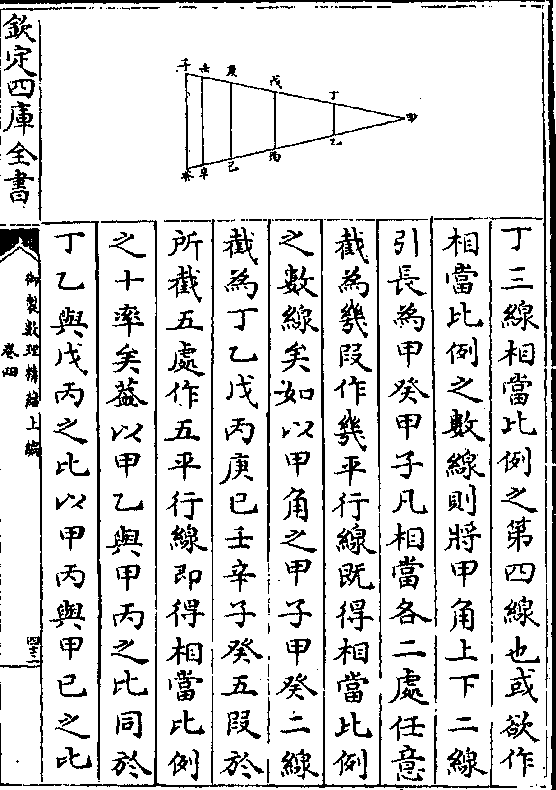 欽定四庫全書
御製數理精蘊上編
卷四
子 壬 庚 戊 丁 甲
癸 辛 己 丙 乙
丁三線相當比例之第四線也或欲作
相當比例之數線則將甲角上下二線
引長為甲癸甲子凡相當各二處任意
截為幾段作幾平行線既得相當比例
之數線矣如以甲角之甲子甲癸二線
截為丁乙戊丙庚己壬辛子癸五段於
所截五處作五平行線即得相當比例
之十率矣葢以甲乙與甲丙之比同於
丁乙與戊丙之比以甲丙與甲已之比